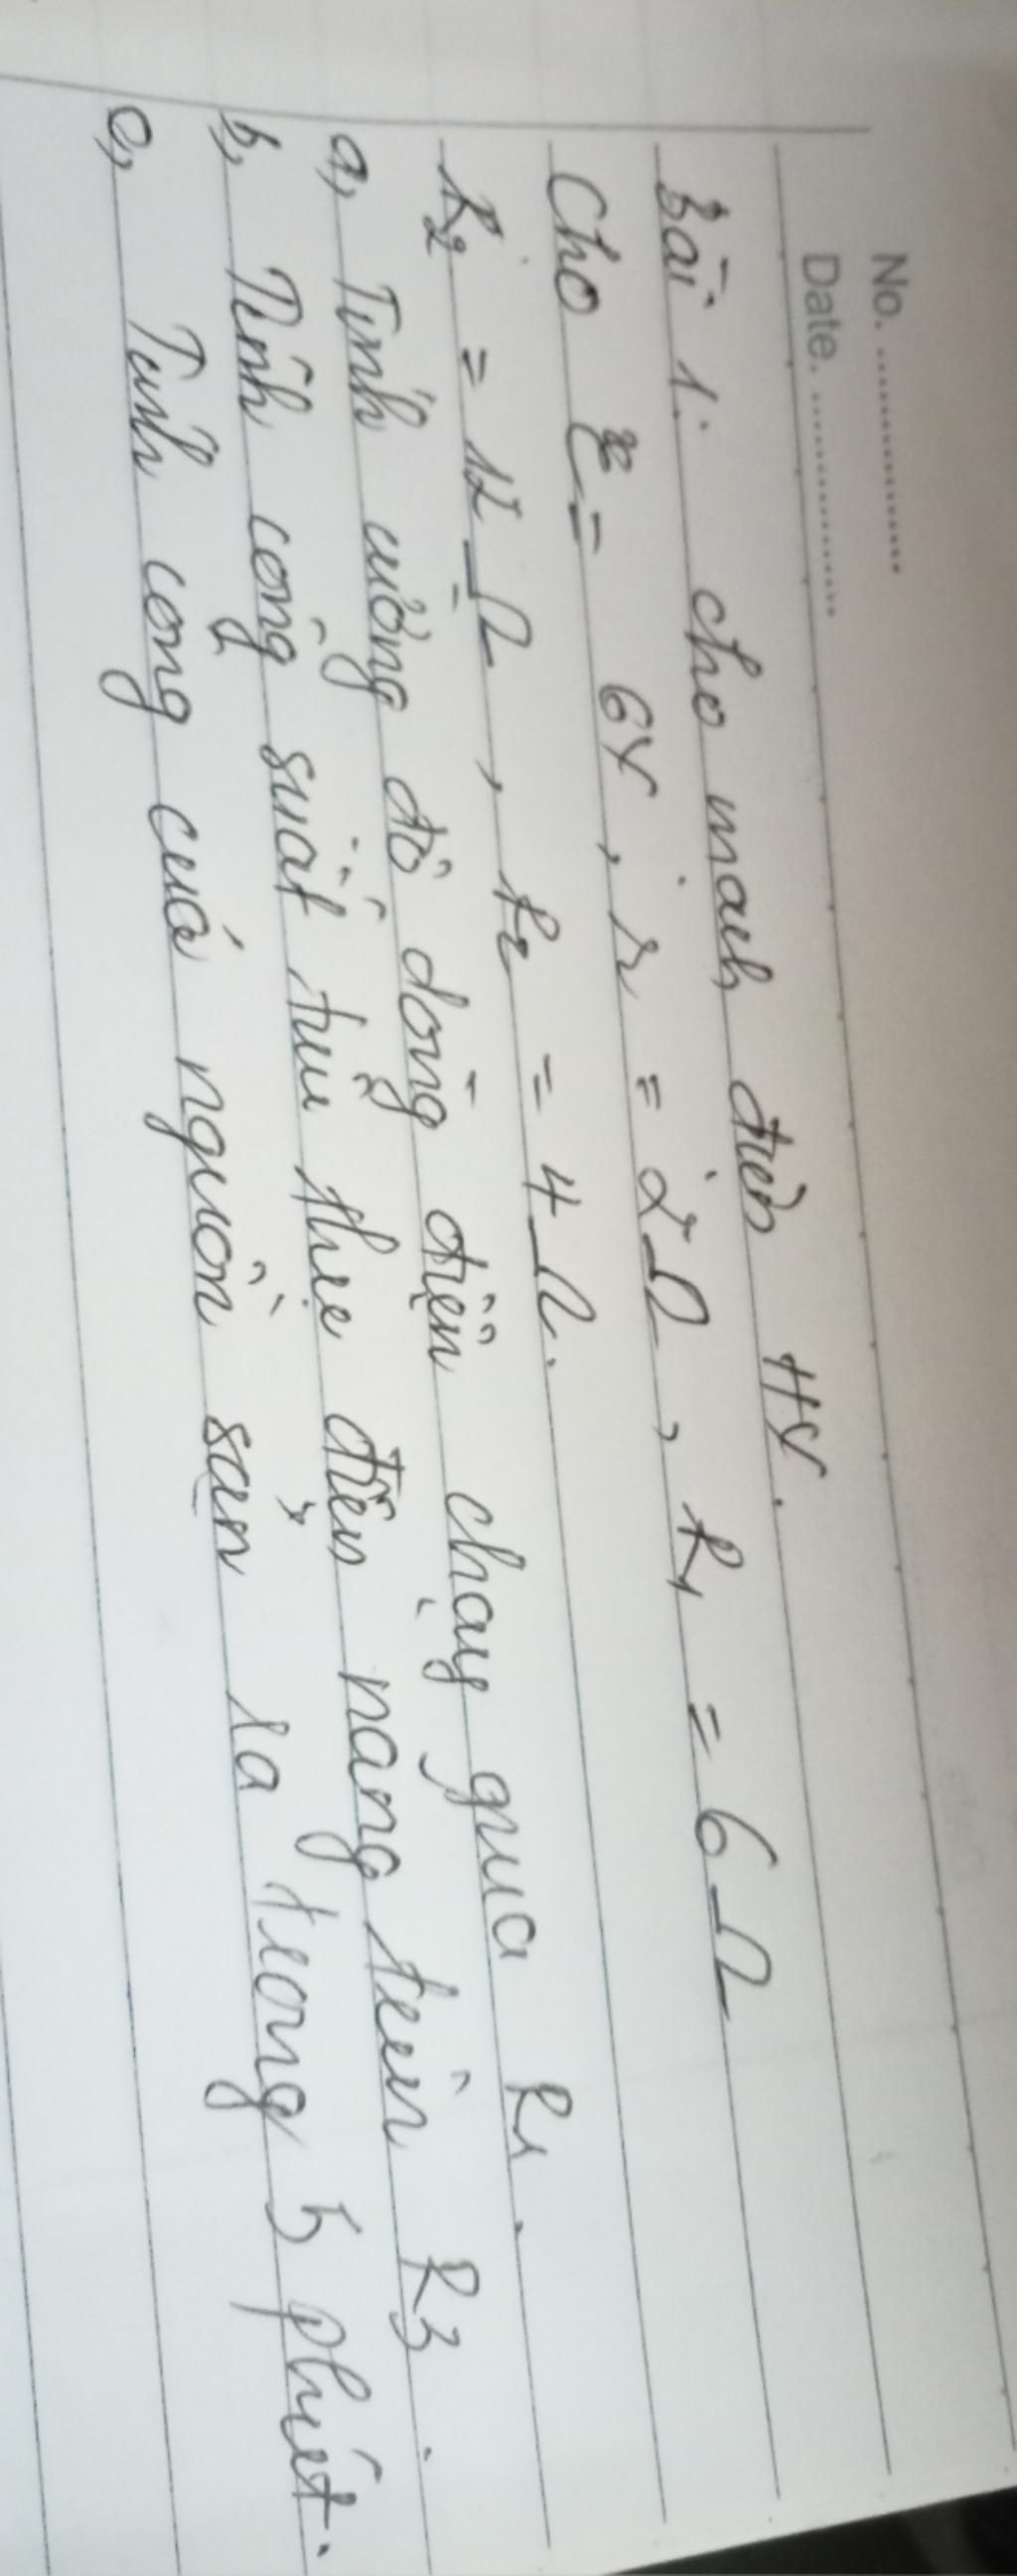 No. ................
Date. ................
Bài 1: cho mạch điện HV.
Cho ξ = 6V, r = 2Ω, R1 = 6Ω
R2 = 12Ω, R2 = 4Ω.
a, Tính cường độ dòng điện chạy qua R1.
b, Tính công suất tiêu thụ điện năng trên R3.
c, Tính công của nguồn sản ra trong 5 phút.